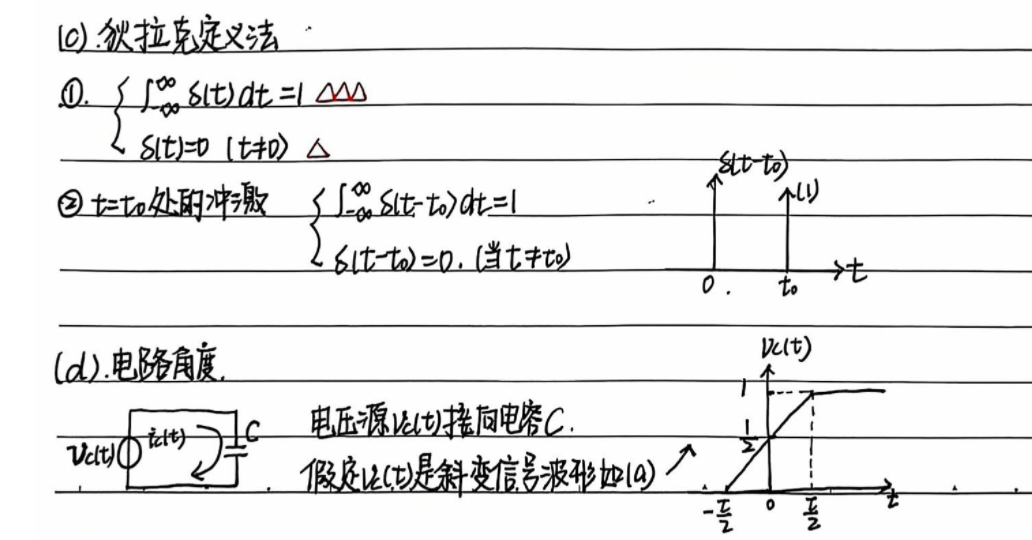 (c).狄拉克定义法
①. { ∫_{-∞}^{∞} δ(t)dt=1 △△△
δ(t)=0 (t≠0) △
② t=t₀处的冲激 { ∫_{-∞}^{∞} δ(t-t₀)dt=1
δ(t-t₀)=0. (当t≠t₀)
δ(t-t₀)
(1)
0. t₀ t
(d).电路角度.
电压源Vc(t)接向电容C.
假定Vc(t)是斜变信号波形如(a)
Vc(t) ic(t) C
Vc(t)
1
1/2
-τ/2 0 τ/2 t